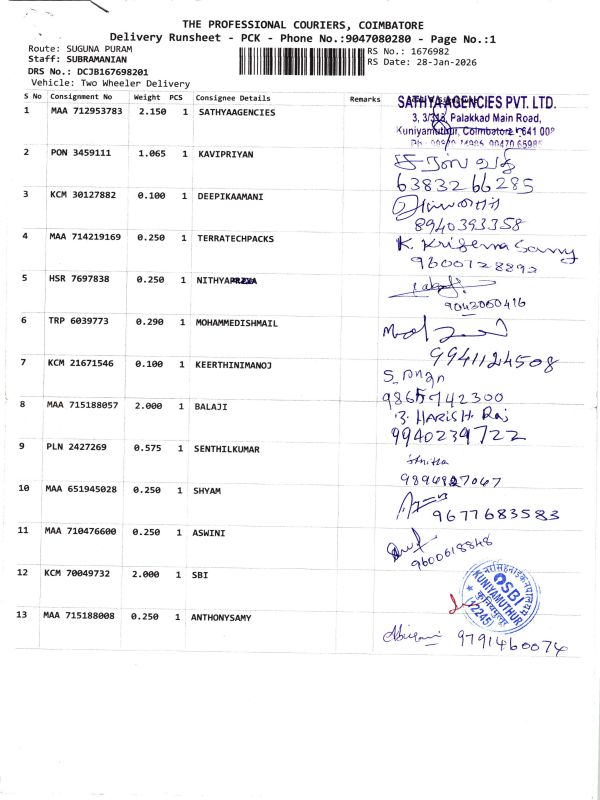 THE PROFESSIONAL COURIERS, COIMBATORE
Delivery Runsheet - PCK - Phone No.:9047080280 - Page No.:1
Route: SUGUNA PURAM
RS No.: 1676982
Staff: SUBRAMANIAN
RS Date: 28-Jan-2026
DRS No.: DCJB167698201
Vehicle: Two Wheeler Delivery
S No Consignment No Weight PCS Consignee Details Remarks
1 MAA 712953783 2.150 1 SATHYAAGENCIES
SATHYA AGENCIES PVT. LTD.
3, 3/318, Palakkad Main Road,
Kuniyamuthur, Coimbatore - 641 008
2 PON 3459111 1.065 1 KAVIPRIYAN
6383266285
3 KCM 30127882 0.100 1 DEEPIKAAMANI
8940393358
4 MAA 714219169 0.250 1 TERRATECHPACKS
K. Krishna Samy
9600728892
5 HSR 7697838 0.250 1 NITHYAPRIYA
9042060416
6 TRP 6039773 0.290 1 MOHAMMEDISHMAIL
9941124508
7 KCM 21671546 0.100 1 KEERTHINIMANOJ
9865742300
8 MAA 715188057 2.000 1 BALAJI
B. HARISH Raj
9940239722
9 PLN 2427269 0.575 1 SENTHILKUMAR
9894927047
10 MAA 651945028 0.250 1 SHYAM
9677683583
11 MAA 710476600 0.250 1 ASWINI
9600618848
12 KCM 70049732 2.000 1 SBI
SBI
KUNIYAMUTHUR
13 MAA 715188008 0.250 1 ANTHONYSAMY
9791460074